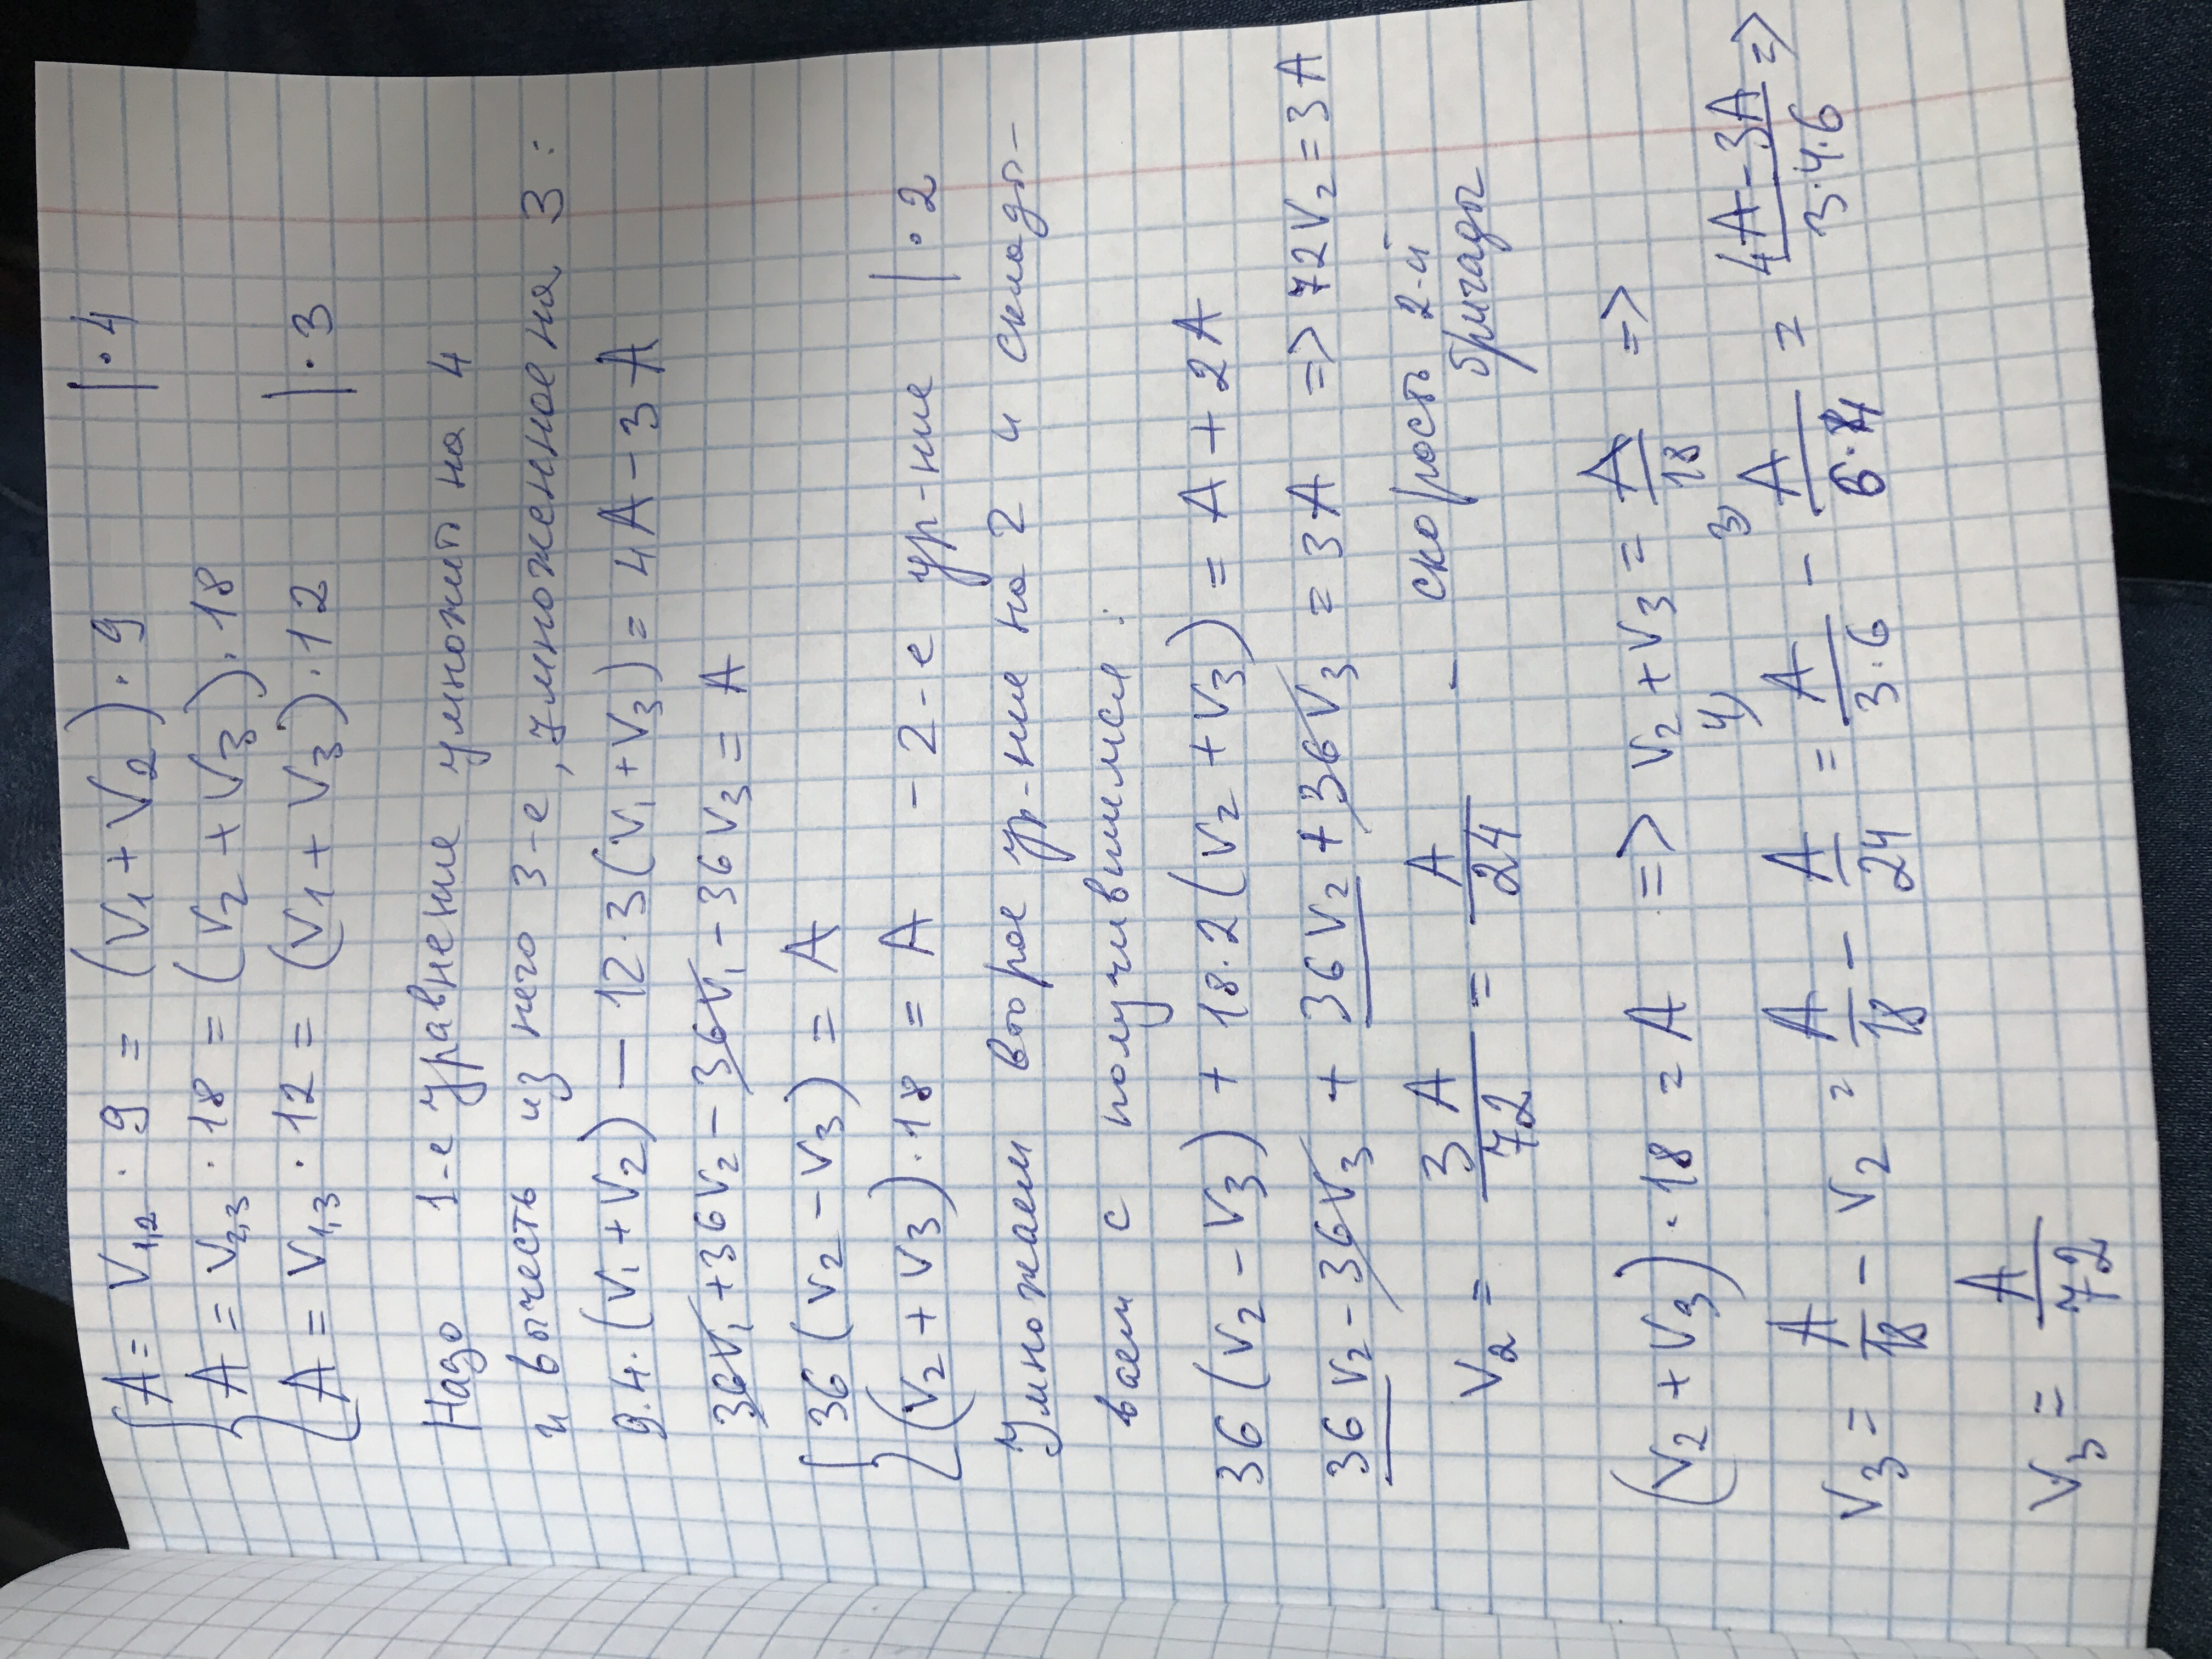 A = V₁,₂ · 9 = (V₁ + V₂) · 9 | · 4
A = V₂,₃ · 18 = (V₂ + V₃) · 18
A = V₁,₃ · 12 = (V₁ + V₃) · 12 | · 3
Надо 1-е уравнение умножить на 4
и вычесть из него 3-е, умноженное на 3:
9·4·(V₁ + V₂) − 12·3(V₁ + V₃) = 4A − 3A
36V₁ + 36V₂ − 36V₁ − 36V₃ = A
36(V₂ − V₃) = A
(V₂ + V₃)·18 = A − 2-е ур-ние | · 2
Умножаем второе ур-ние на 2 и склады-
ваем с получившимся:
36(V₂ − V₃) + 18·2(V₂ + V₃) = A + 2A
36V₂ − 36V₃ + 36V₂ + 36V₃ = 3A => 72V₂ = 3A
V₂ = 3A/72 = A/24 − скорость 2-й
бригады
(V₂ + V₃)·18 = A => V₂ + V₃ = A/18 =>
4) 3)
V₃ = A/18 − V₂ = A/18 − A/24 = A/3·6 − A/6·4 = 4A − 3A/3·4·6 =>
V₃ = A/72